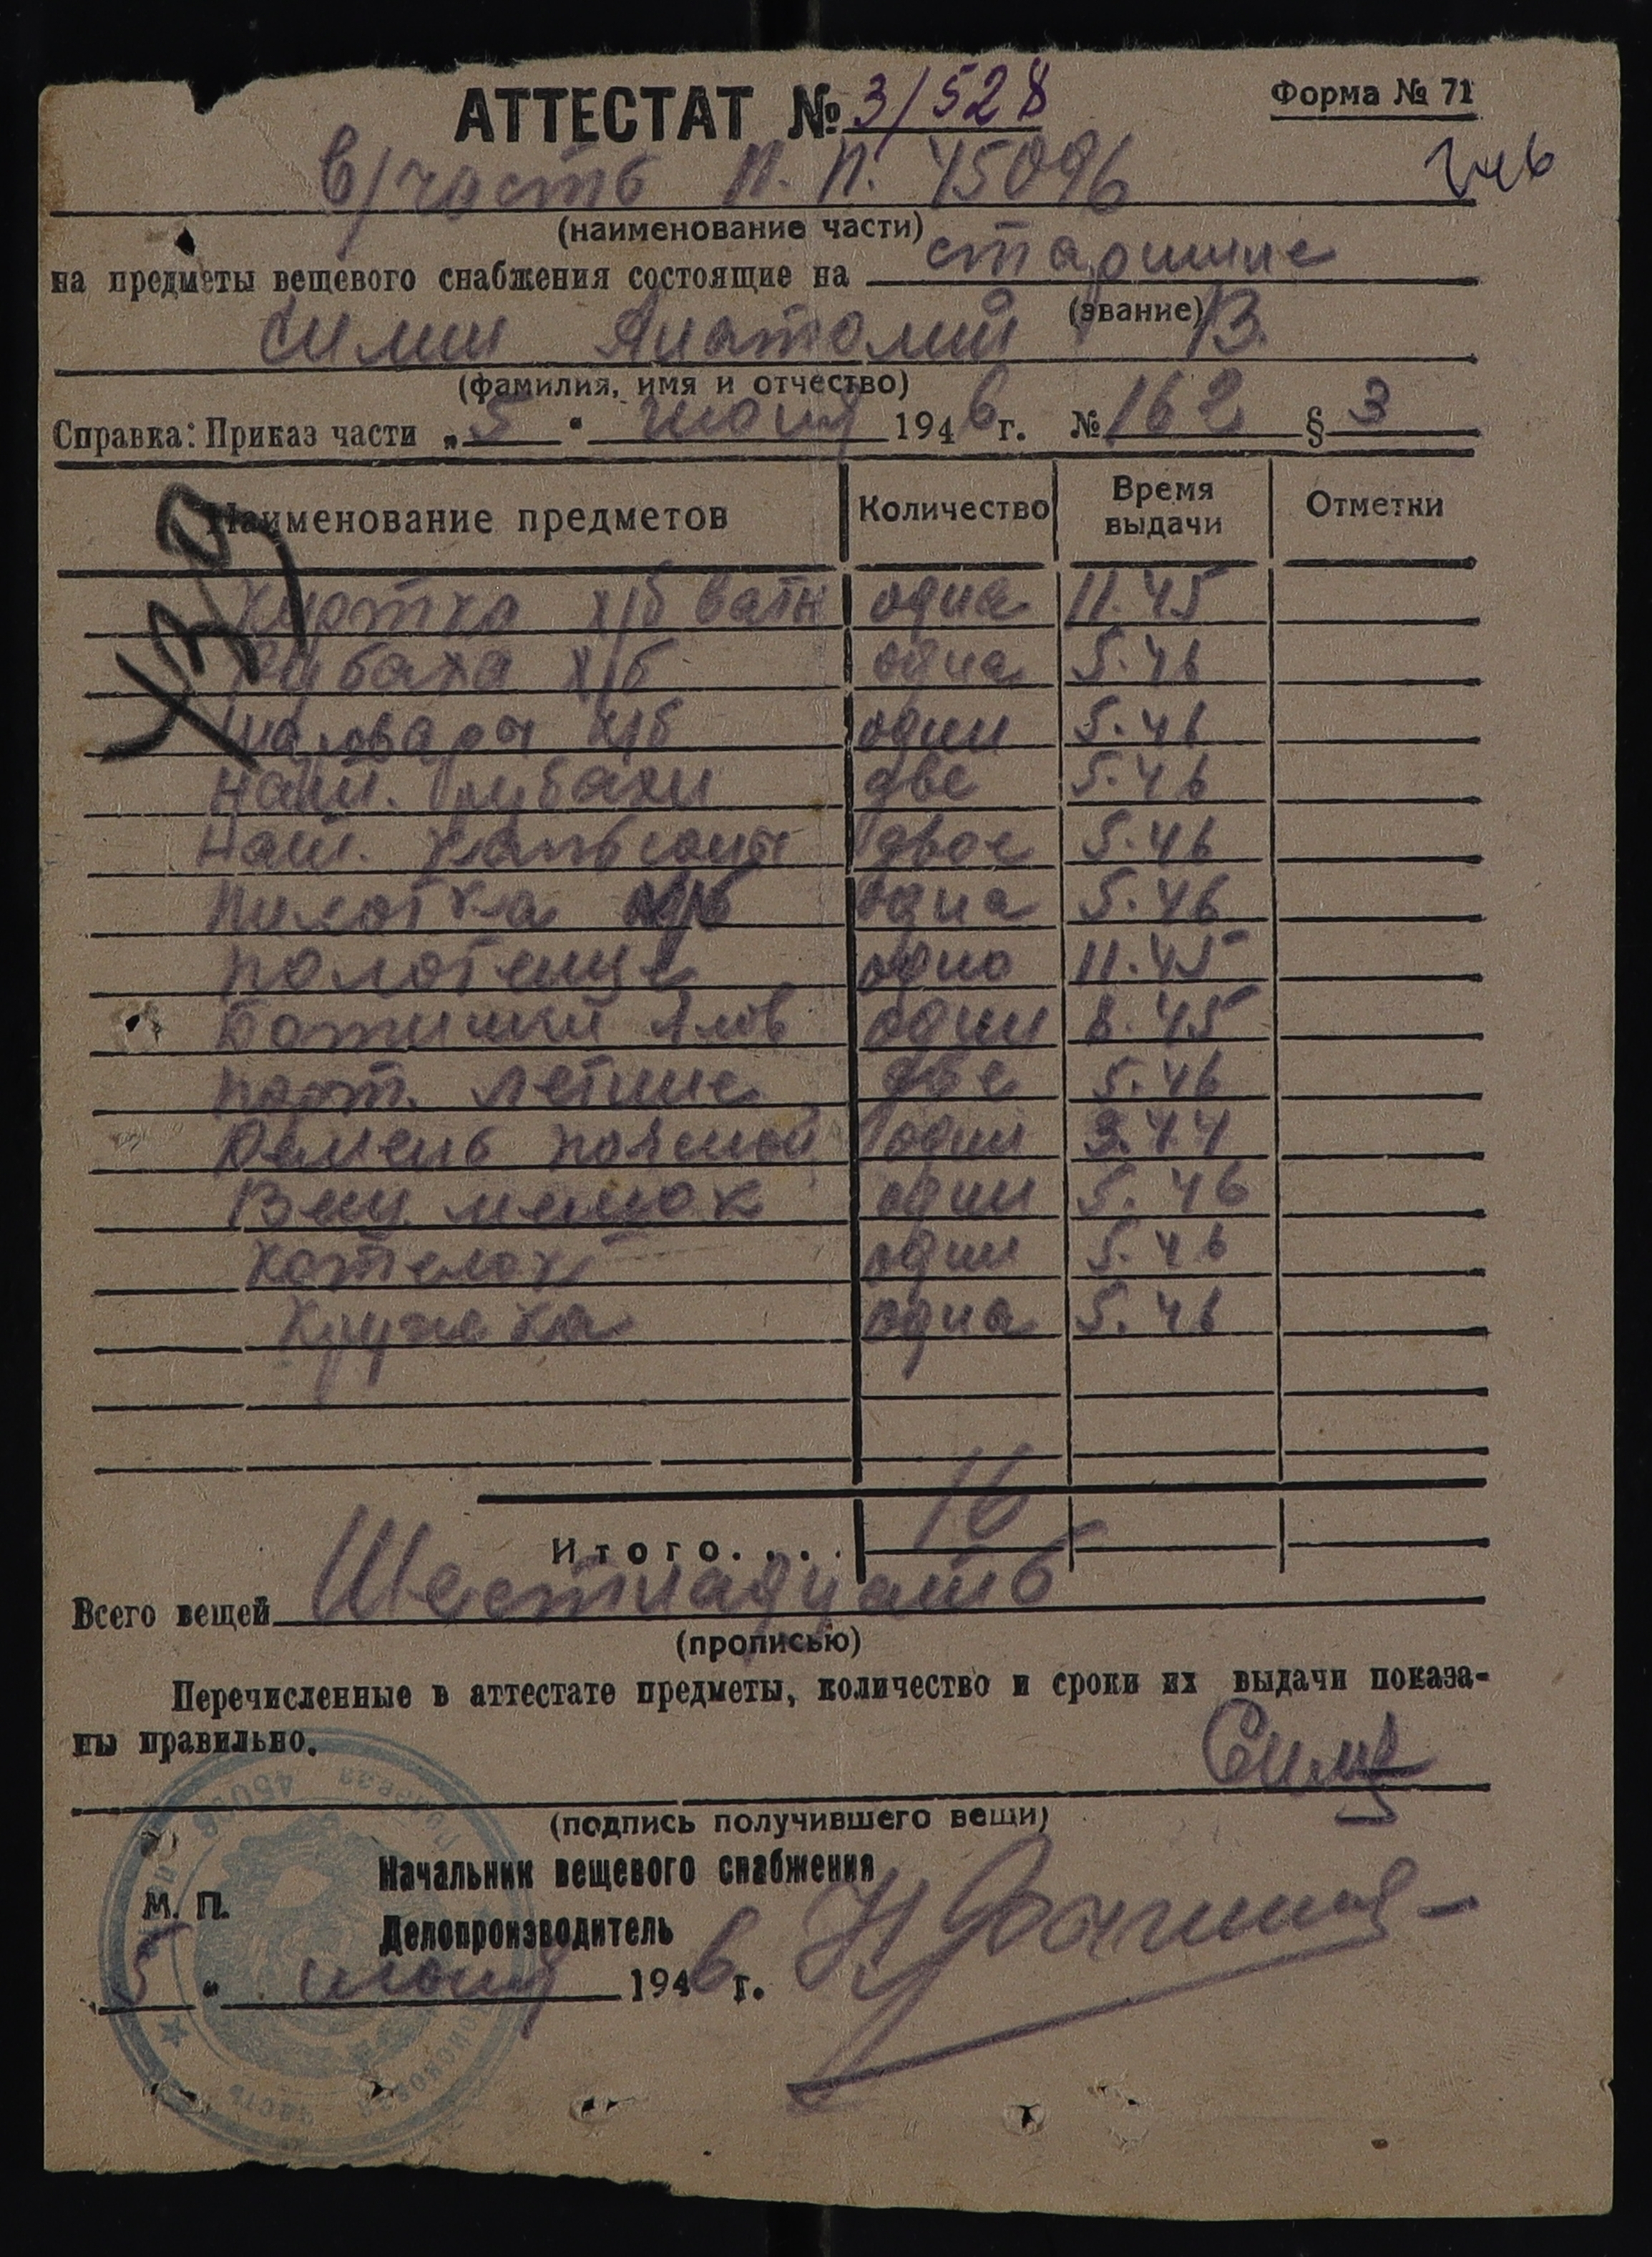 АТТЕСТАТ № 3/528
Форма № 71
в/часть п.п. 45096
(наименование части)
на предметы вещевого снабжения состоящие на старшине
(звание)
Симин Анатолий В.
(фамилия, имя и отчество)
Справка: Приказ части „5" июня 1946 г. № 162 § 3
Наименование предметов Количество Время выдачи Отметки
Куртка х/б ватн одна 11.45
Рубаха х/б одна 5.46
Шаровары х/б одни 5.46
Нат. рубахи две 5.46
Нат. кальсоны двое 5.46
Пилотка х/б одна 5.46
Полотенце одно 11.45
Ботинки ялов одни 8.45
Порт. летние две 5.46
Ремень поясной один 3.44
Вещ. мешок один 5.46
Котелок один 5.46
Кружка одна 5.46
Итого.... 16
Всего вещей Шестнадцать
(прописью)
Перечисленные в аттестате предметы, количество и сроки их выдачи показа-
ны правильно.
(подпись получившего вещи)
Начальник вещевого снабжения
М. П.
Делопроизводитель
5 " июня 1946 г.